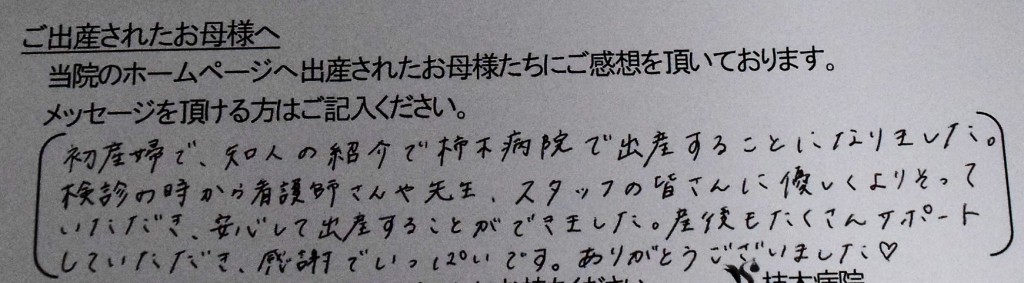 ご出産されたお母様へ
当院のホームページへ出産されたお母様たちにご感想を頂いております。
メッセージを頂ける方はご記入ください。
初産婦で、知人の紹介で柿木病院で出産することになりました。
検診の時から看護師さんや先生、スタッフの皆さんに優しくよりそって
いただき、安心して出産することができました。産後もたくさんサポート
していただき、感謝でいっぱいです。ありがとうございました♡